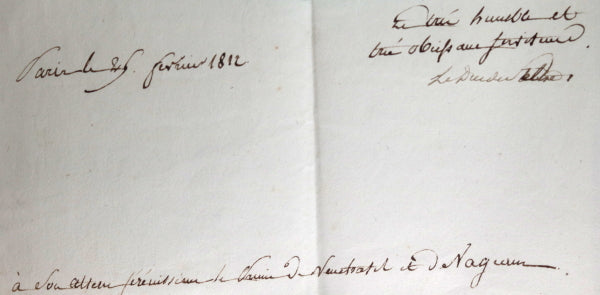 Le très humble et
très obéissant serviteur.
Le Duc de
Paris le 25. février 1812
à Son Altesse Sérénissime le Prince de Neuchatel et de Wagram